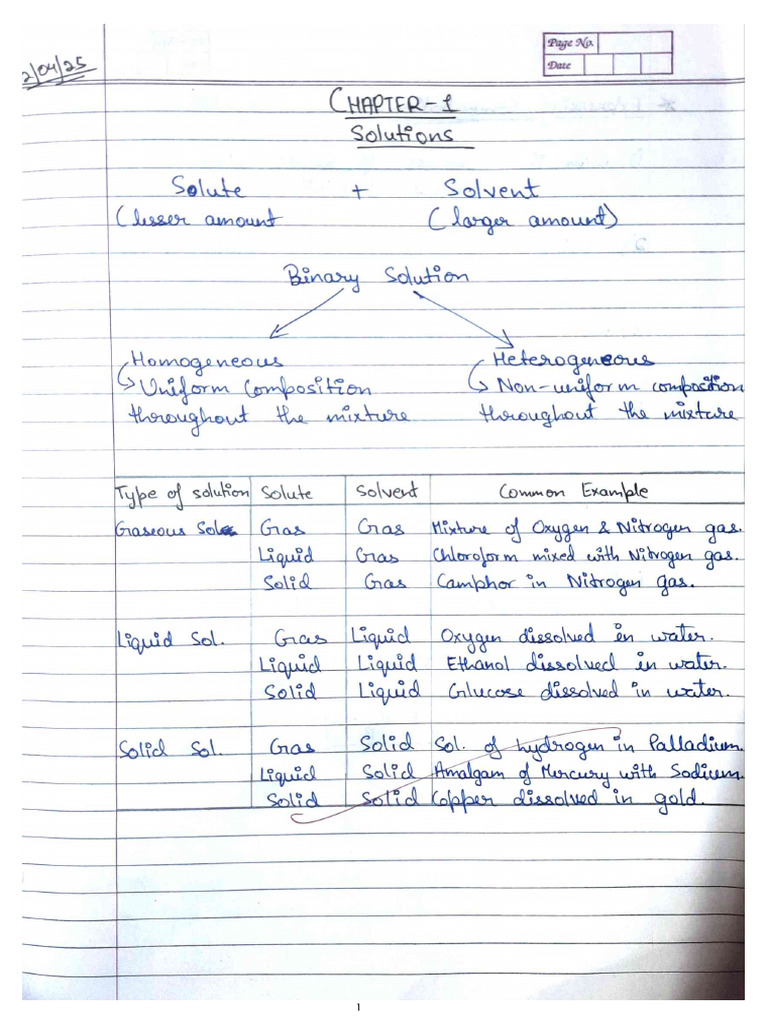 Page No.
Date
2/04/25
CHAPTER-1
Solutions
Solute + Solvent
(lesser amount (larger amount)
Binary Solution
Homogeneous Heterogeneous
Uniform composition Non-uniform composition
throughout the mixture throughout the mixture
Type of solution Solute Solvent Common Example
Gaseous Sol. Gas Gas Mixture of Oxygen & Nitrogen gas.
Liquid Gas Chloroform mixed with Nitrogen gas.
Solid Gas Camphor in Nitrogen gas.
Liquid Sol. Gas Liquid Oxygen dissolved in water.
Liquid Liquid Ethanol dissolved in water.
Solid Liquid Glucose dissolved in water.
Solid Sol. Gas Solid Sol. of hydrogen in Palladium.
Liquid Solid Amalgam of Mercury with Sodium.
Solid Solid Copper dissolved in gold.
1